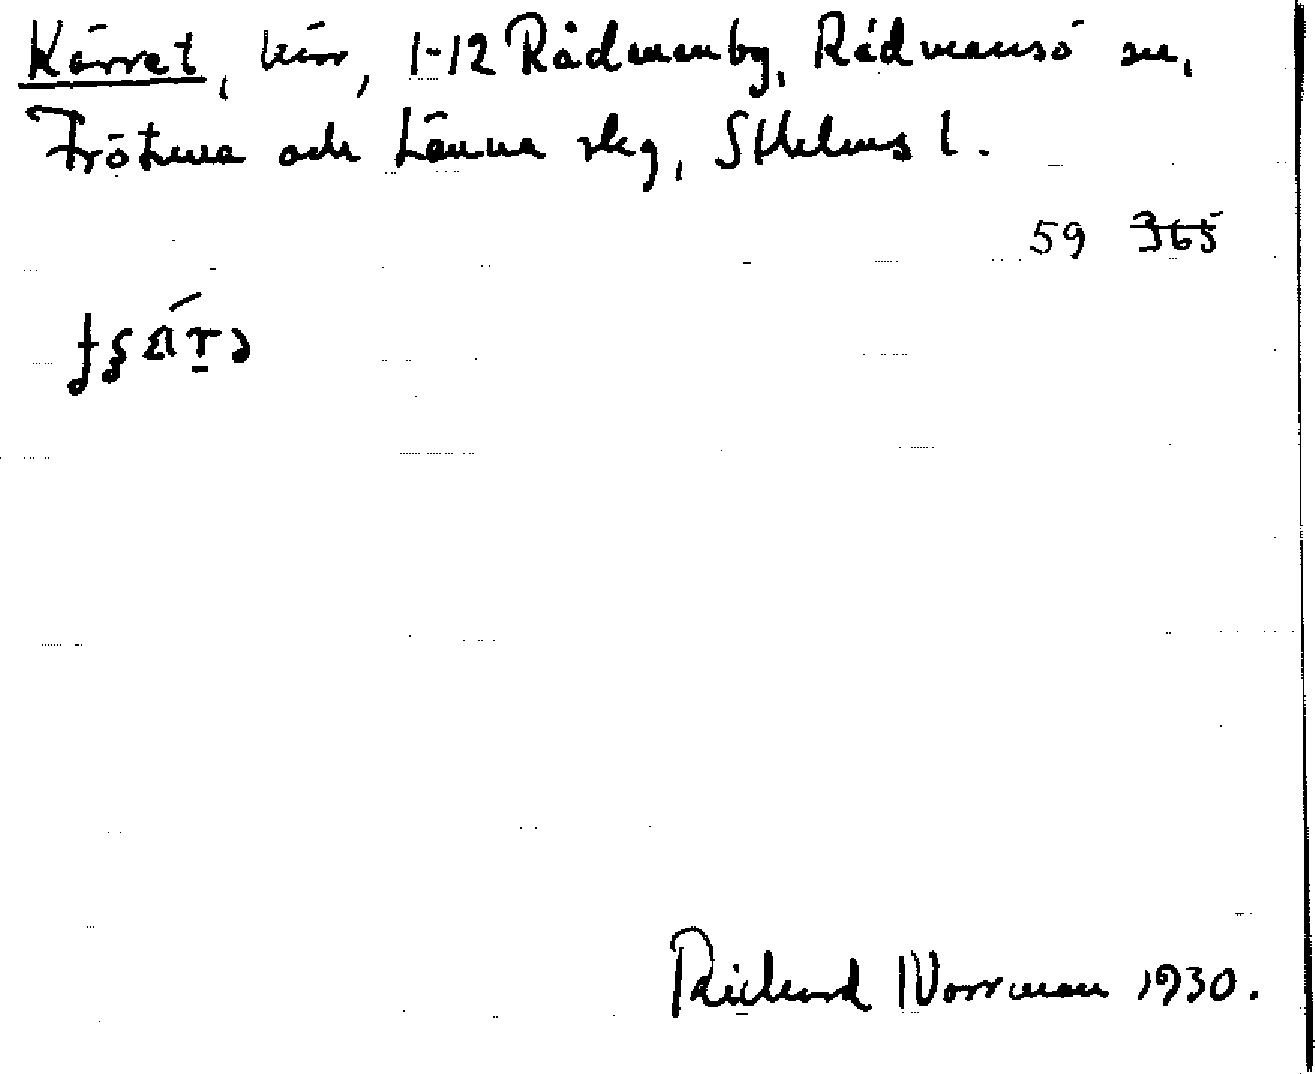 Kärret, kärr, 1-12 Rådmanby, Rådmansö sn,
Frötuna och Länna skg, Sthlms l.
59 365
Richard Norrman 1930.